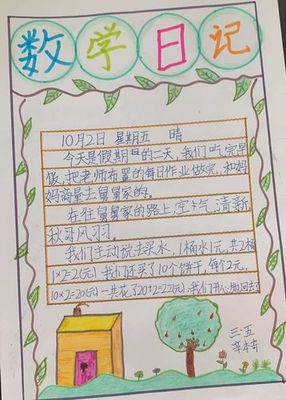 数学日记
10月2日 星期五 晴
今天是假期的二天,我们吃完早
饭,把老师布置的每日作业做完,和妈
妈商量去舅舅家的。
在往舅舅家的路上,空气清新,
秋
我们主动说去买水,1桶水1元,共2桶
1×2=2(元)我们还买了10个饼干,每个2元,
10×2=20(元)一共花了20+2=22(元),我们开心
三·五